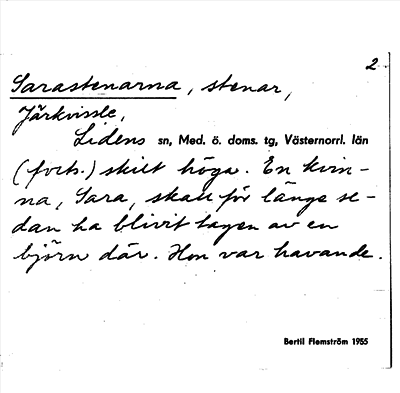 2
Sarastenarna, stenar,
Järkvissle,
Lidens sn, Med. ö. doms. tg, Västernorrl. län
(forts.) skilt höga. En kvin-
na, Sara, skall för länge se-
dan ha blivit tagen av en
björn där. Hon var havande.
Bertil Flemström 1955